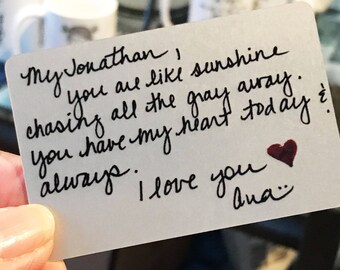 My Jonathan,
you are like sunshine
chasing all the gray away.
you have my heart today &
always.
I love you ♥
Ana